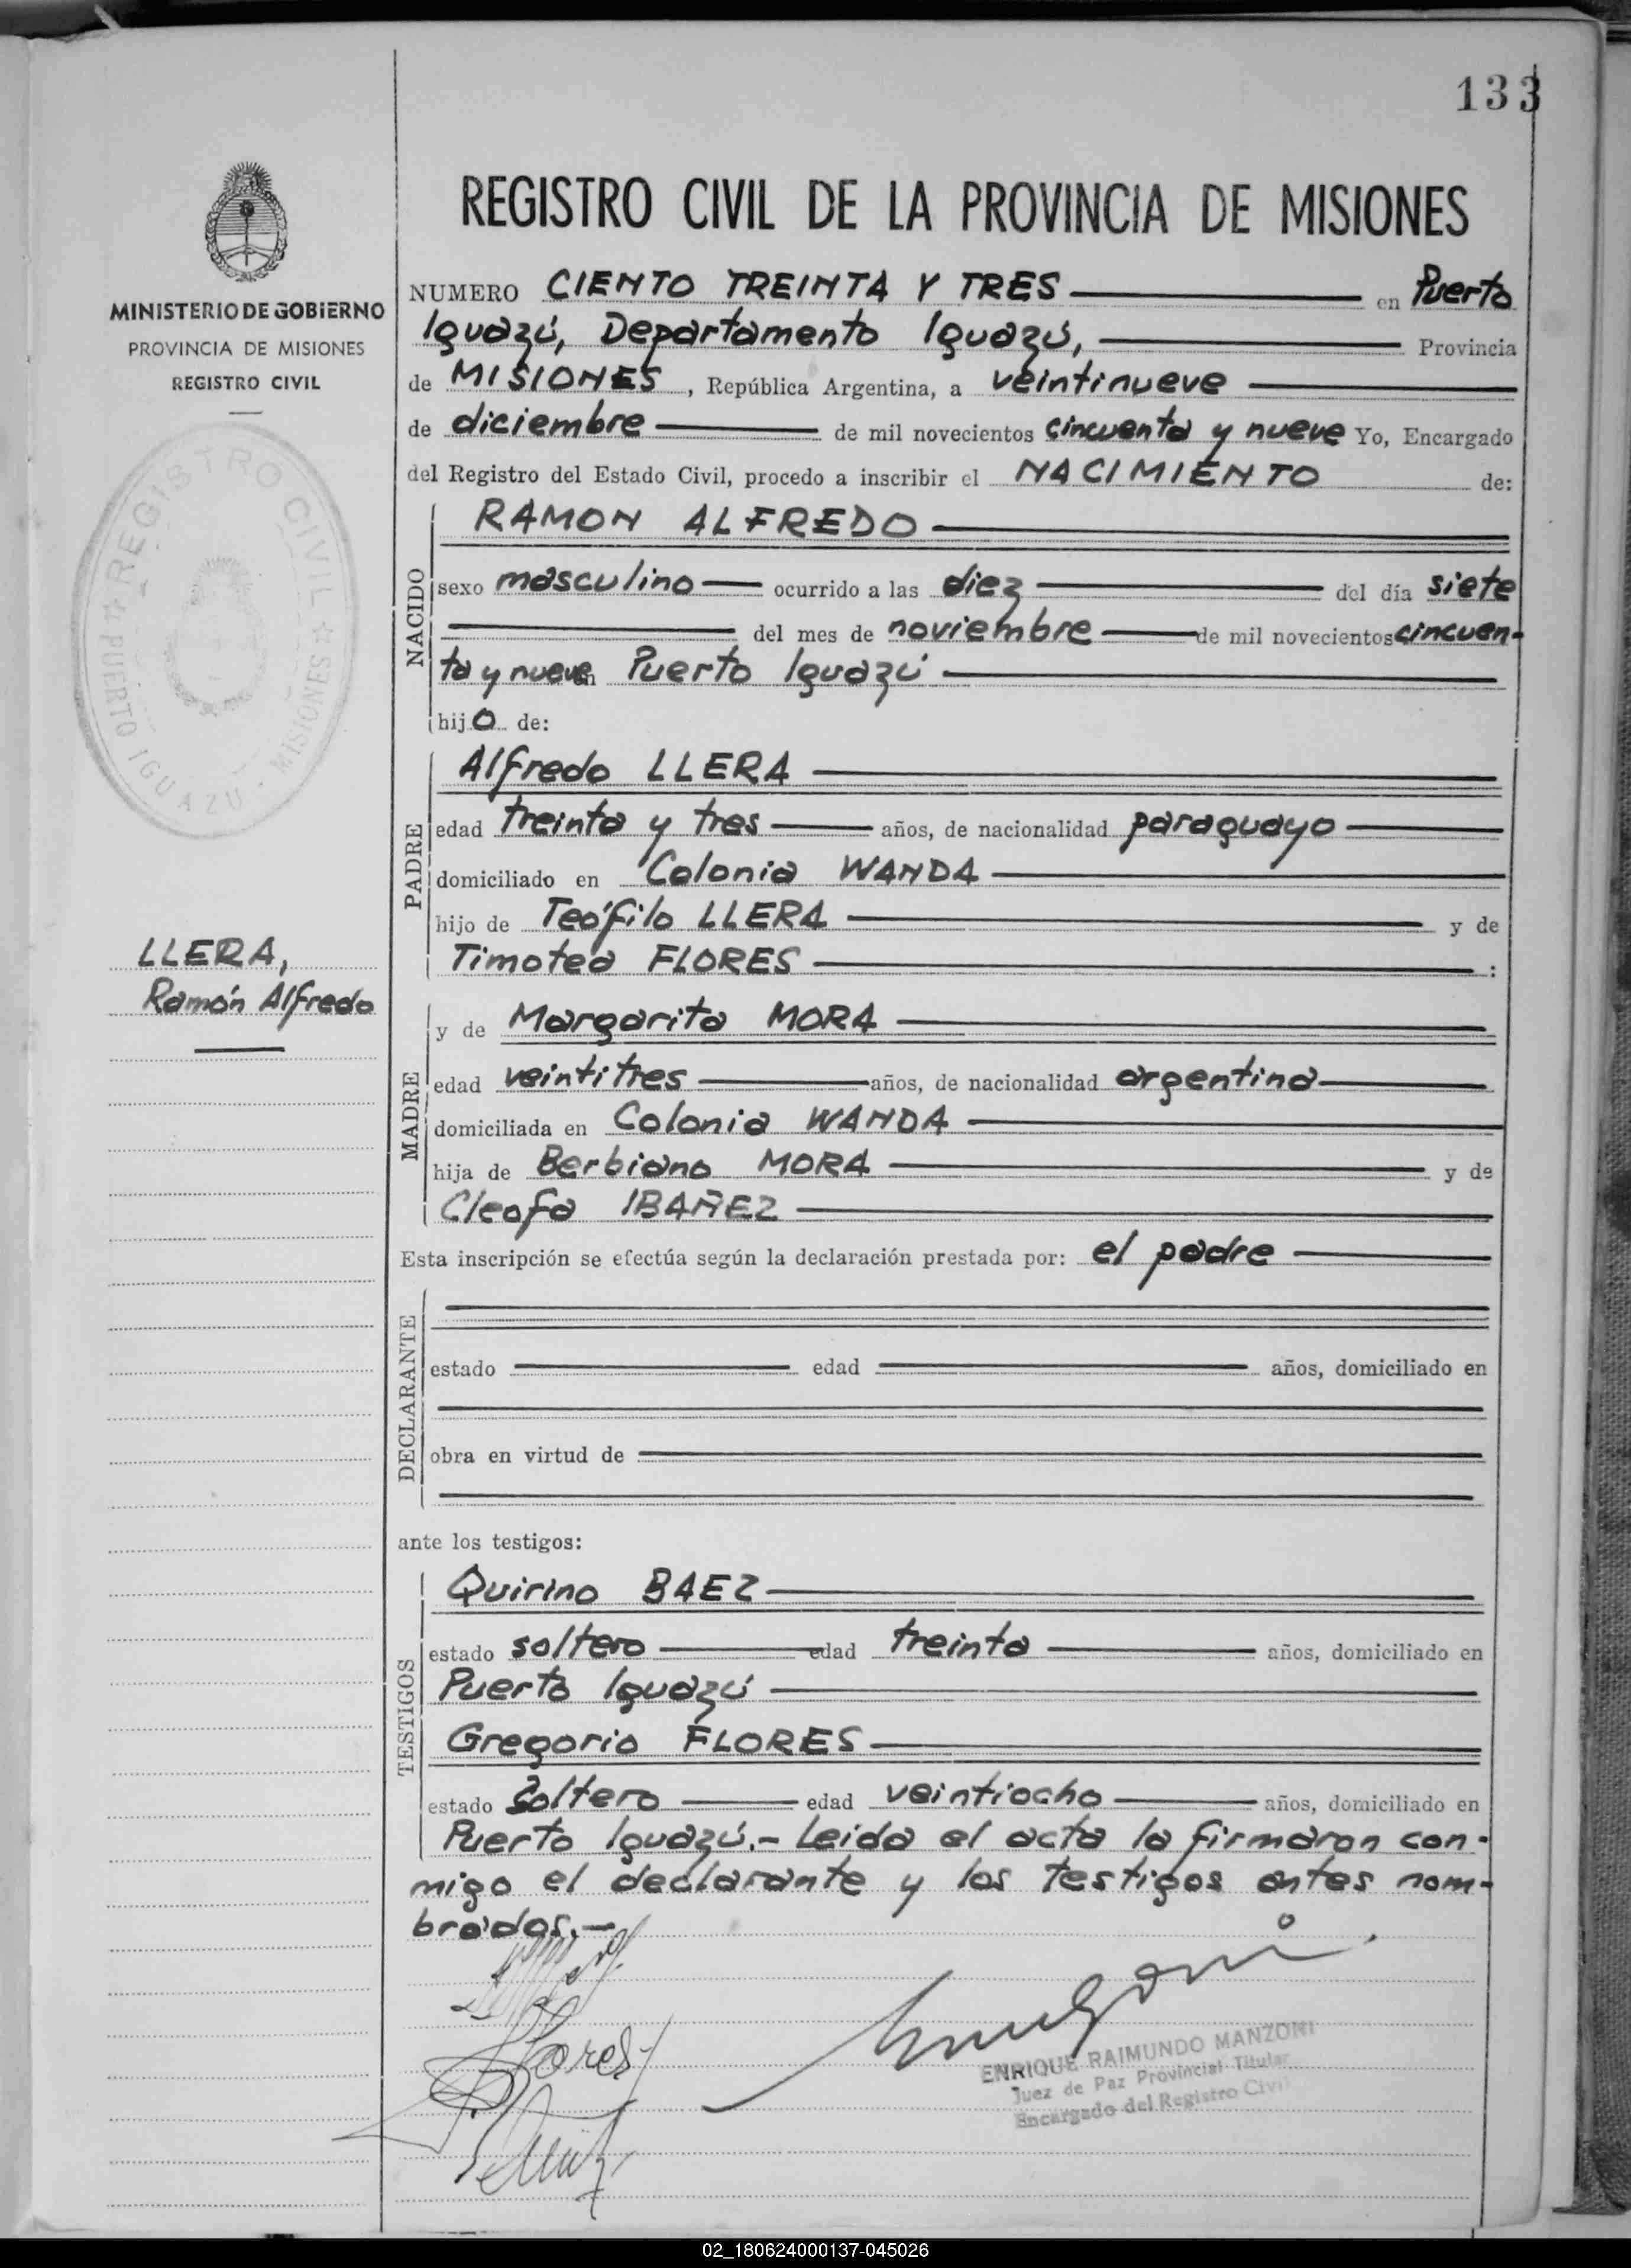 133
MINISTERIO DE GOBIERNO
PROVINCIA DE MISIONES
REGISTRO CIVIL
REGISTRO CIVIL
PUERTO IGUAZU - MISIONES
LLERA,
Ramón Alfredo
REGISTRO CIVIL DE LA PROVINCIA DE MISIONES
NUMERO CIENTO TREINTA Y TRES en Puerto
Iguazú, Departamento Iguazú, Provincia
de MISIONES, República Argentina, a veintinueve
de diciembre de mil novecientos cincuenta y nueve Yo, Encargado
del Registro del Estado Civil, procedo a inscribir el NACIMIENTO de:
NACIDO
RAMON ALFREDO
sexo masculino ocurrido a las diez del día siete
del mes de noviembre de mil novecientos cincuen-
ta y nueve en Puerto Iguazú
hijo de:
PADRE
Alfredo LLERA
edad treinta y tres años, de nacionalidad paraguayo
domiciliado en Colonia WANDA
hijo de Teófilo LLERA y de
Timotea FLORES :
MADRE
y de Margarita MORA
edad veintitres años, de nacionalidad argentina
domiciliada en Colonia WANDA
hija de Berbiano MORA y de
Cleofa IBAÑEZ
Esta inscripción se efectúa según la declaración prestada por: el padre
DECLARANTE
estado edad años, domiciliado en
obra en virtud de
ante los testigos:
TESTIGOS
Quirino BAEZ
estado soltero edad treinta años, domiciliado en
Puerto Iguazú
Gregorio FLORES
estado soltero edad veintiocho años, domiciliado en
Puerto Iguazú.- Leida el acta la firmaron con-
migo el declarante y los testigos antes nom-
brados.-
Flores
ENRIQUE RAIMUNDO MANZONI
Juez de Paz Provincial Titular
Encargado del Registro Civil
02_180624000137-045026